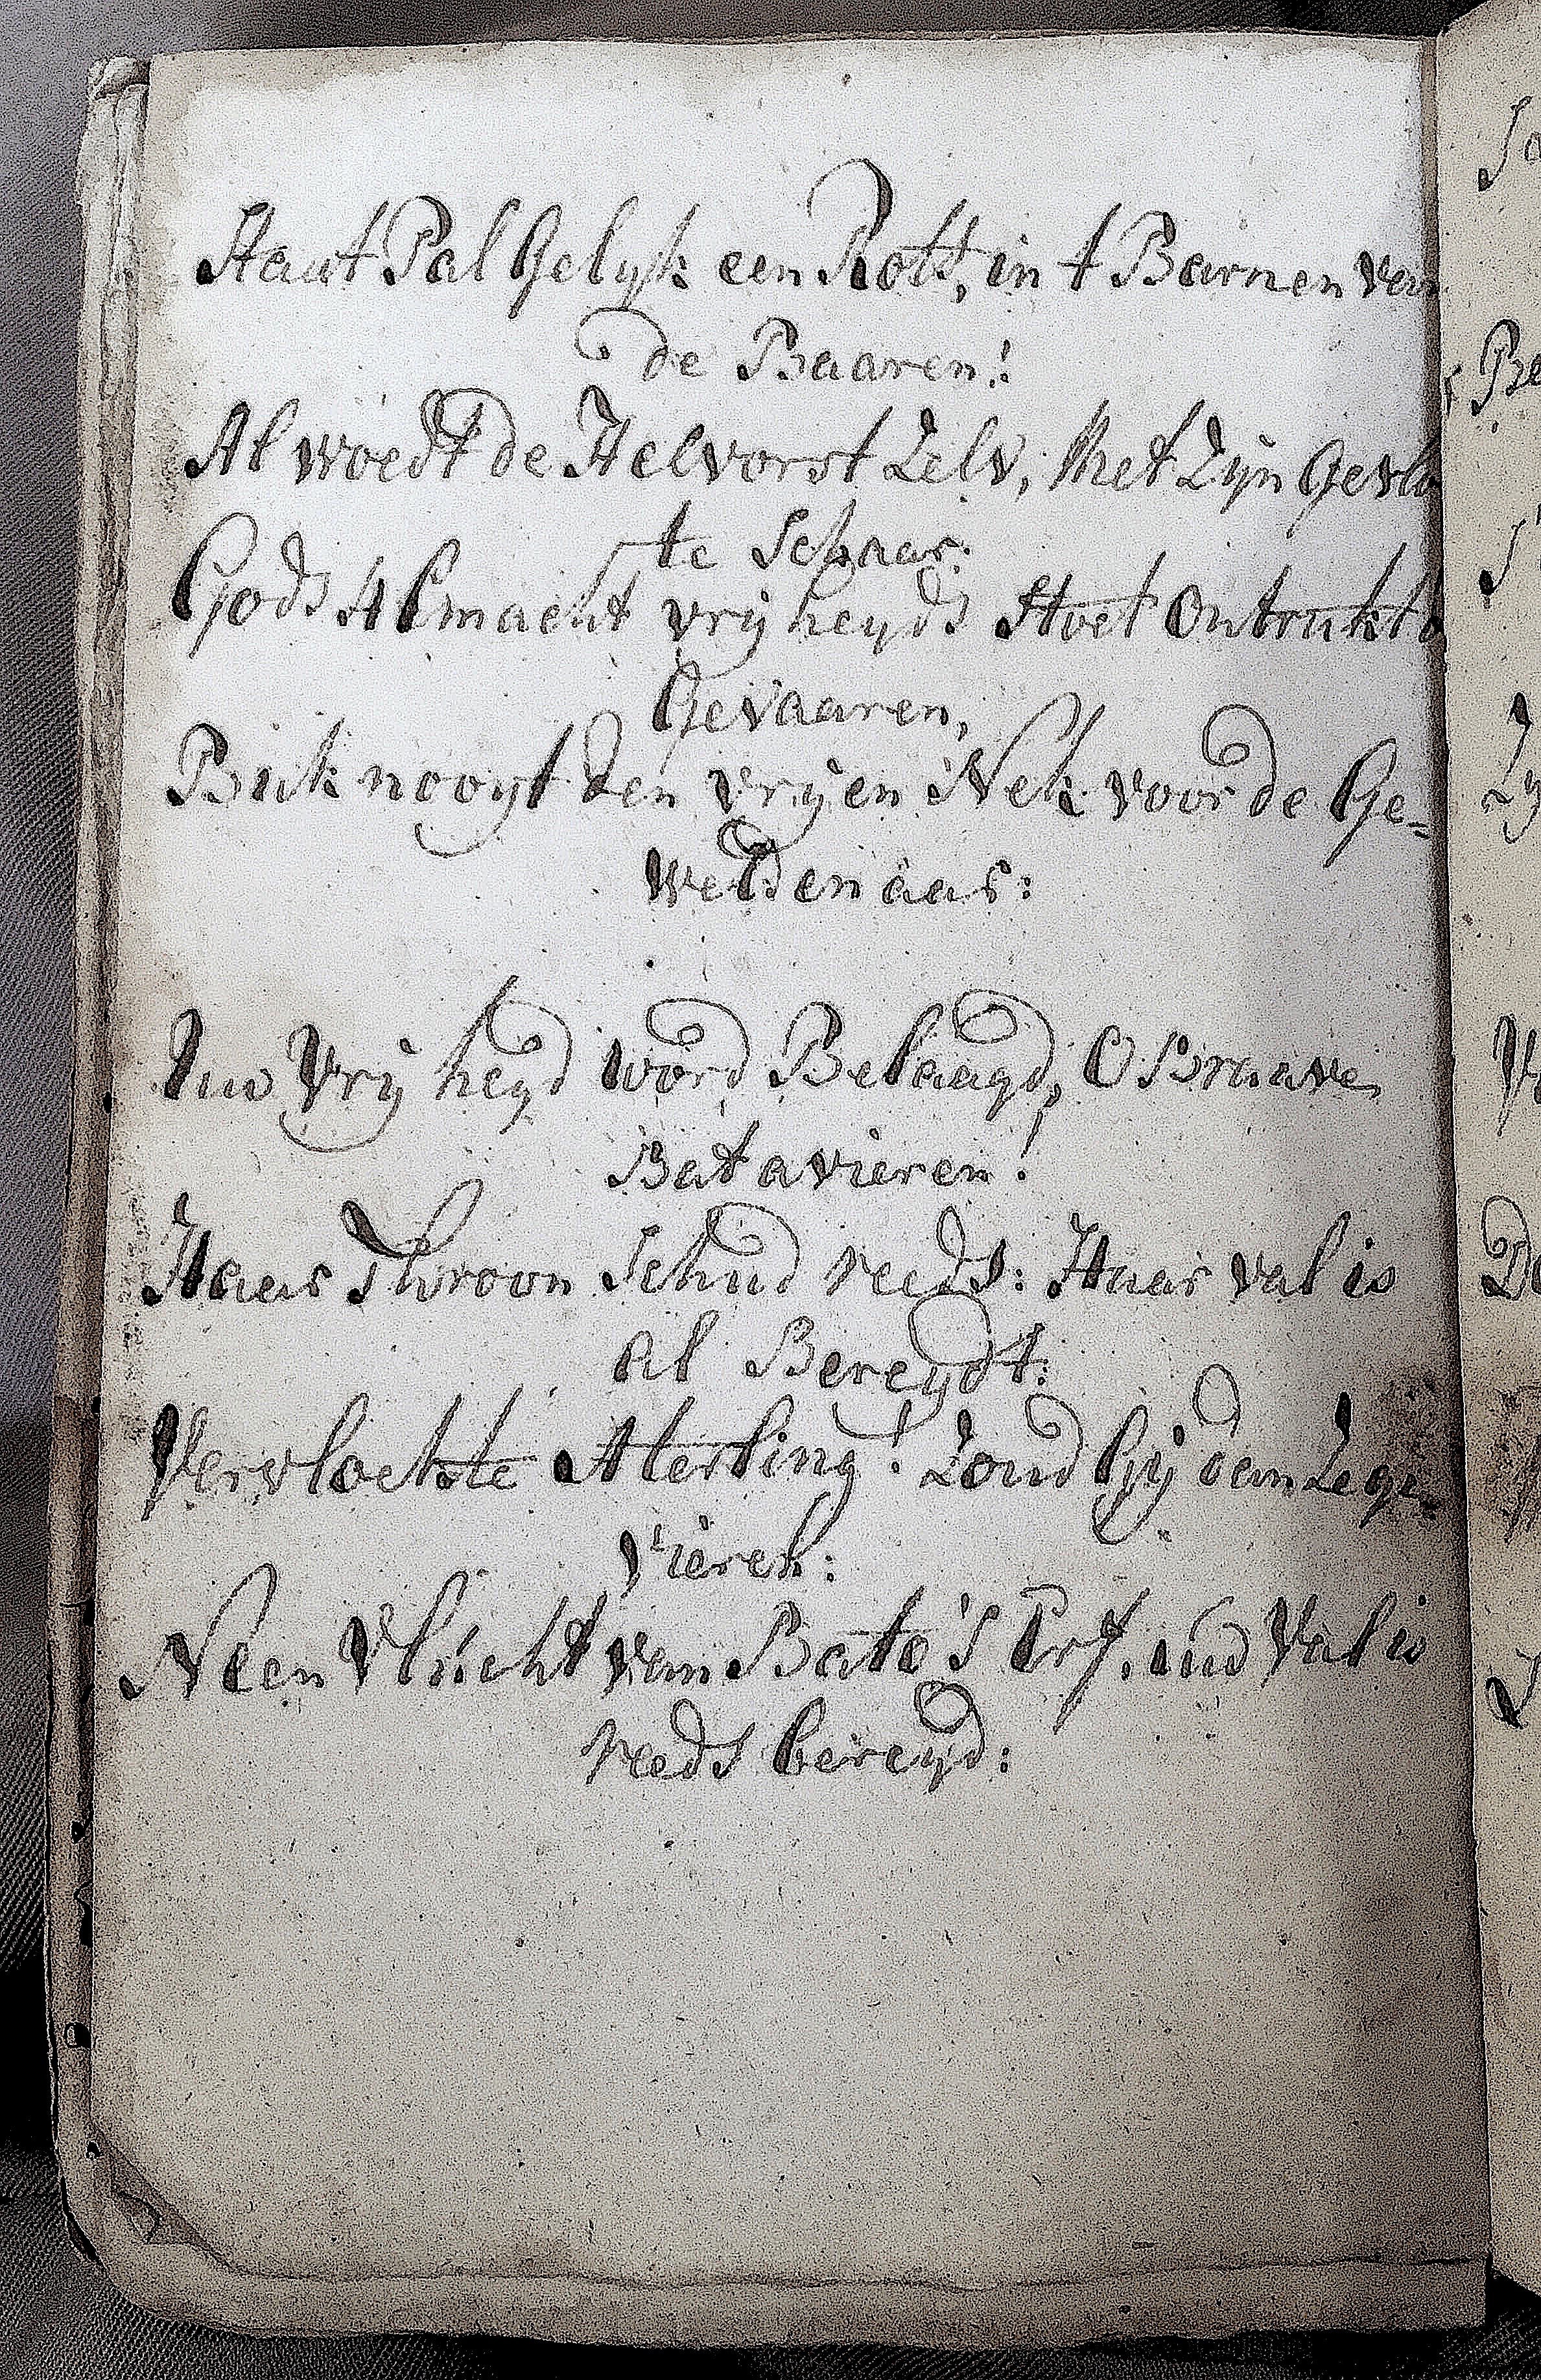 Staat Pal Gelijk een Rots, in t Barnen van
de Baaren!
Al woedt de Helvorst Zelv, Met Zijn Gevlo
te Schaar.
Gods Almacht vrijheyds Stoet Ontrukt
Gevaaren,
Buk nooyt den vrijen Nek voor de Ge=
weldenaar:
Uw Vrijheyd word Belaagd, O Braave
Batavieren!
Haar Throon Schud reeds: Haar val is
al Bereydt:
Vervloekste Aterling! Zoud Gij dan Zege-
vieren:
Neen Vlucht van Bato's Erf. uw Val is
reeds bereyd: